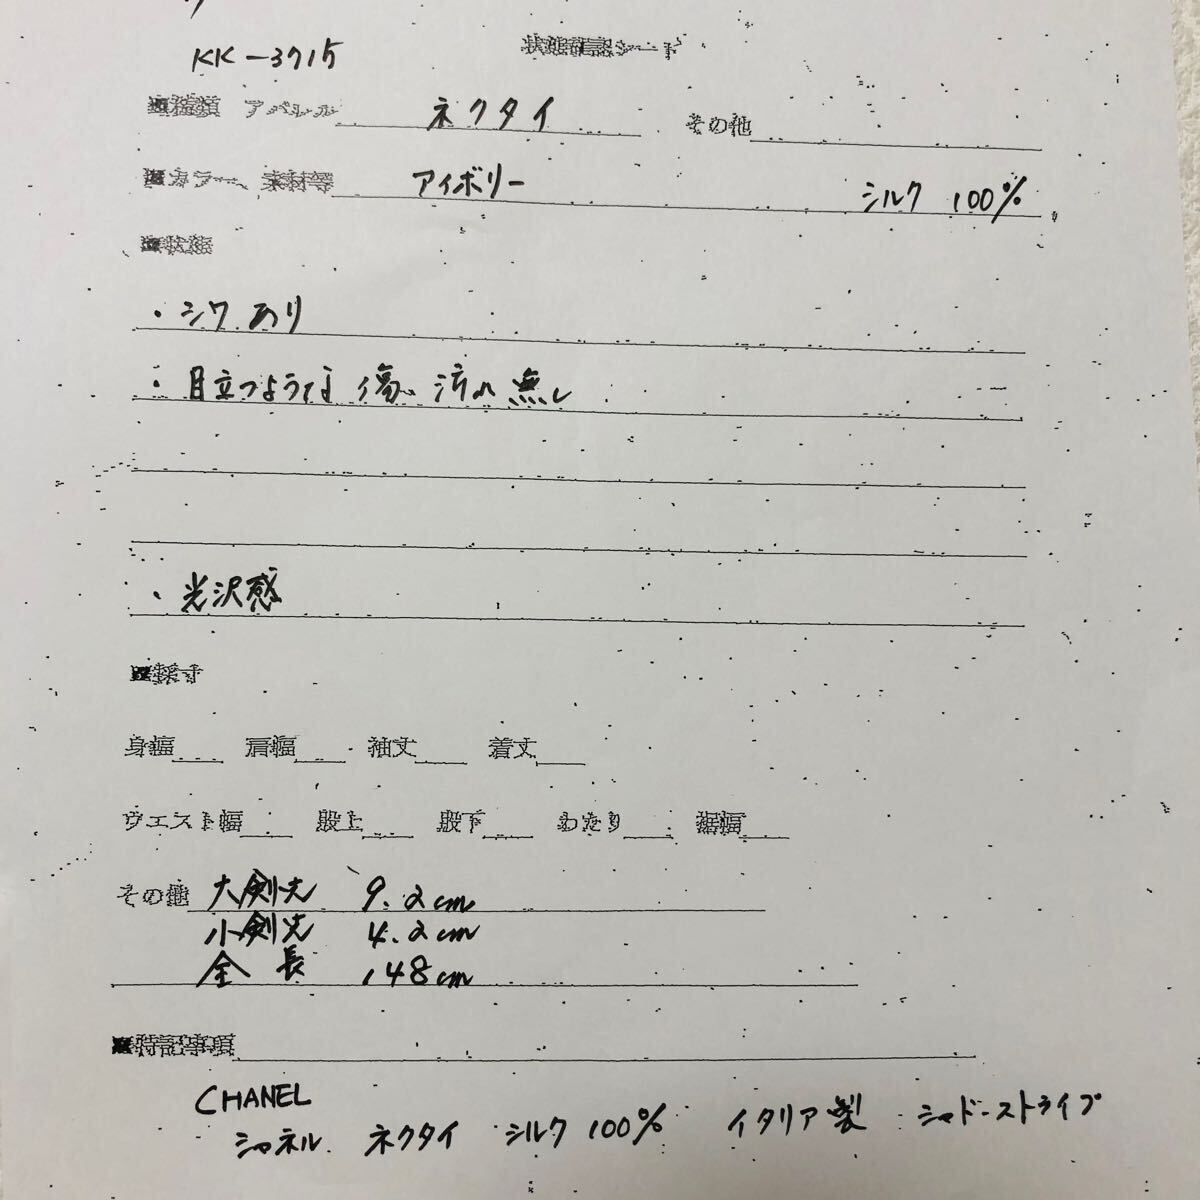 KK-3715
状態確認シート
■種類 アパレル ネクタイ その他
■カラー、素材等 アイボリー シルク 100%
■状態
・シワ あり
・目立つような 傷、汚れ 無し
・光沢感
■採寸
身幅 肩幅 袖丈 着丈
ウエスト幅 股上 股下 わたり 裾幅
その他 大剣先 9.2cm
小剣先 4.2cm
全長 148cm
■特記事項
CHANEL
シャネル ネクタイ シルク 100% イタリア製 シャドーストライプ